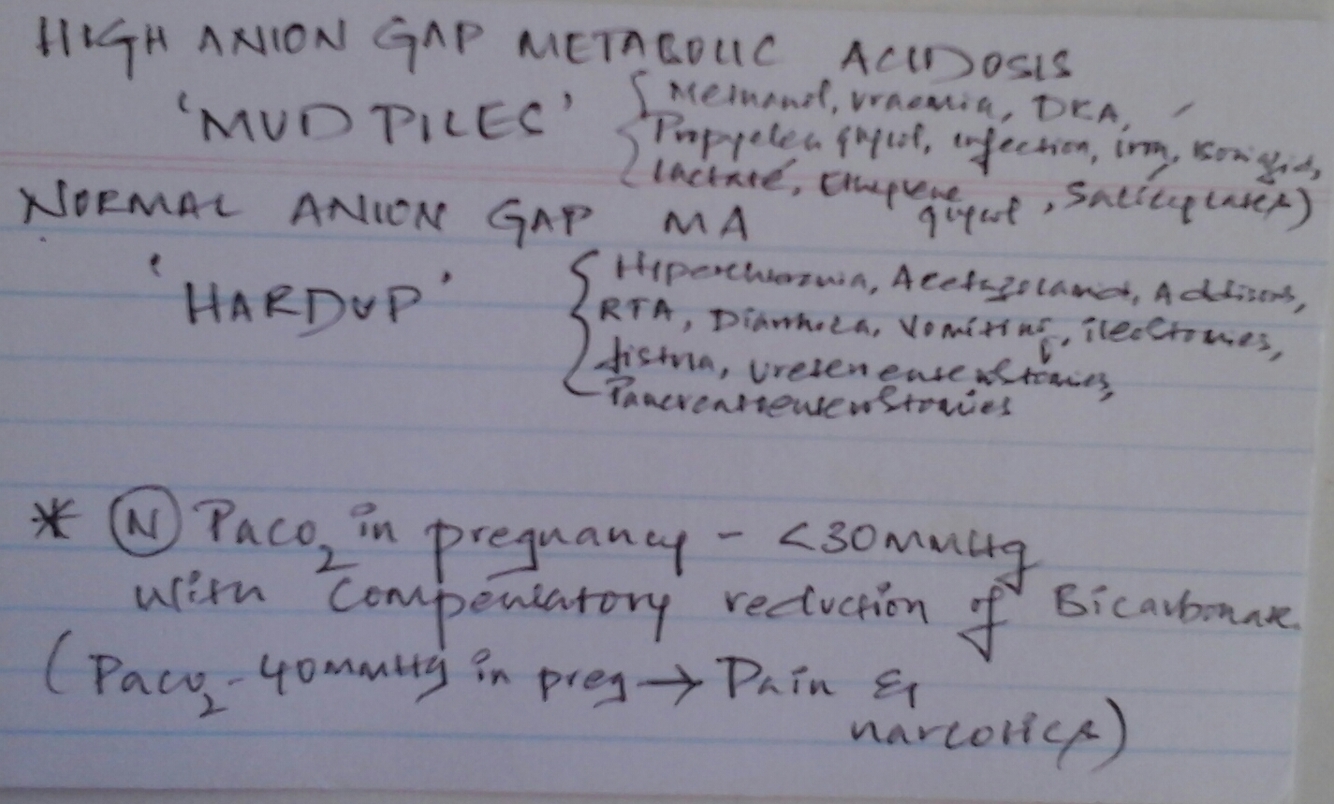 HIGH ANION GAP METABOLIC ACIDOSIS
'MUD PILES' { Methanol, uraemia, DKA,
Propylen glycol, infection, iron, isoniazid,
lactate, Ethylene glycol, Salicylates)
NORMAL ANION GAP MA
'HARDUP' { Hyperchloremia, Acetazolamid, Addisons,
RTA, Diarrhoea, Vomiting, ileostomies,
fistula,
Pancreaticenterostomies
* (N) PaCO2 in pregnancy - <30mmHg
with compensatory reduction of Bicarbonate
(PaCO2 - 40mmHg in preg → Pain &
narcotics)